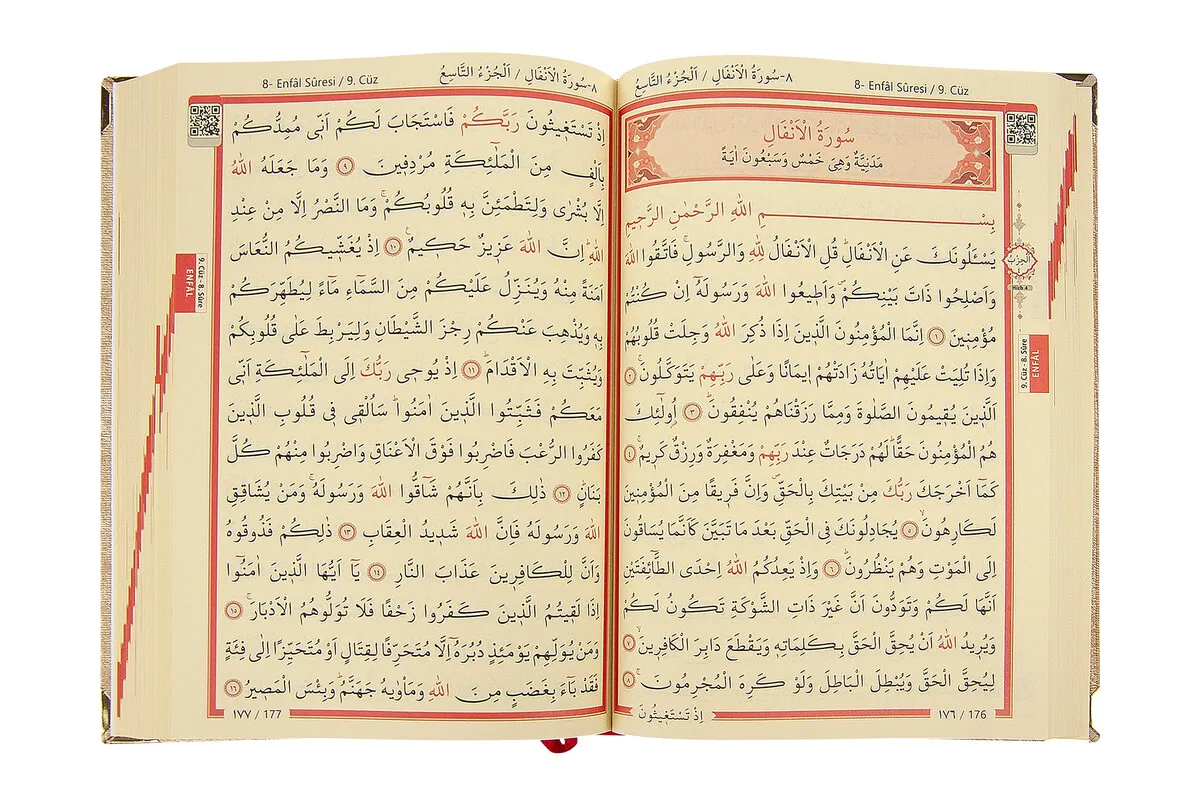 ٨-سُورَةُ الْاَنْفَالِ / اَلْجُزْءُ التَّاسِعُ
8- Enfâl Sûresi / 9. Cüz
سُورَةُ الْاَنْفَالِ
مَدَنِيَّةٌ وَهِىَ خَمْسٌ وَسَبْعُونَ اٰيَةً
بِسْمِ اللّٰهِ الرَّحْمٰنِ الرَّحٖيمِ
يَسْـَٔلُونَكَ عَنِ الْاَنْفَالِۜ قُلِ الْاَنْفَالُ لِلّٰهِ وَالرَّسُولِۚ فَاتَّقُوا اللّٰهَ
وَاَصْلِحُوا ذَاتَ بَيْنِكُمْۖ وَاَطٖيعُوا اللّٰهَ وَرَسُولَهُٓ اِنْ كُنْتُمْ
مُؤْمِنٖينَ ﴿١﴾ اِنَّمَا الْمُؤْمِنُونَ الَّذٖينَ اِذَا ذُكِرَ اللّٰهُ وَجِلَتْ قُلُوبُهُمْ
وَاِذَا تُلِيَتْ عَلَيْهِمْ اٰيَاتُهُ زَادَتْهُمْ اٖيمَانًا وَعَلٰى رَبِّهِمْ يَتَوَكَّلُونَۚ ﴿٢﴾
اَلَّذٖينَ يُقٖيمُونَ الصَّلٰوةَ وَمِمَّا رَزَقْنَاهُمْ يُنْفِقُونَۜ ﴿٣﴾ اُو۬لٰٓئِكَ
هُمُ الْمُؤْمِنُونَ حَقًّاۜ لَهُمْ دَرَجَاتٌ عِنْدَ رَبِّهِمْ وَمَغْفِرَةٌ وَرِزْقٌ كَرٖيمٌۚ ﴿٤﴾
كَمَٓا اَخْرَجَكَ رَبُّكَ مِنْ بَيْتِكَ بِالْحَقِّۖ وَاِنَّ فَرٖيقًا مِنَ الْمُؤْمِنٖينَ
لَكَارِهُونَۙ ﴿٥﴾ يُجَادِلُونَكَ فِى الْحَقِّ بَعْدَ مَا تَبَيَّنَ كَاَنَّمَا يُسَاقُونَ
اِلَى الْمَوْتِ وَهُمْ يَنْظُرُونَۜ ﴿٦﴾ وَاِذْ يَعِدُكُمُ اللّٰهُ اِحْدَى الطَّٓائِفَتَيْنِ
اَنَّهَا لَكُمْ وَتَوَدُّونَ اَنَّ غَيْرَ ذَاتِ الشَّوْكَةِ تَكُونُ لَكُمْ
وَيُرٖيدُ اللّٰهُ اَنْ يُحِقَّ الْحَقَّ بِكَلِمَاتِهٖ وَيَقْطَعَ دَابِرَ الْكَافِرٖينَۙ ﴿٧﴾
لِيُحِقَّ الْحَقَّ وَيُبْطِلَ الْبَاطِلَ وَلَوْ كَرِهَ الْمُجْرِمُونَۚ ﴿٨﴾
اِذْ تَسْتَغٖيثُونَ
١٧٦ / 176
اَلْحِزْبُ
9. Cüz - 8. Sûre
ENFÂL
٨-سُورَةُ الْاَنْفَالِ / اَلْجُزْءُ التَّاسِعُ
8- Enfâl Sûresi / 9. Cüz
اِذْ تَسْتَغٖيثُونَ رَبَّكُمْ فَاسْتَجَابَ لَكُمْ اَنّٖى مُمِدُّكُمْ
بِاَلْفٍ مِنَ الْمَلٰٓئِكَةِ مُرْدِفٖينَ ﴿٩﴾ وَمَا جَعَلَهُ اللّٰهُ
اِلَّا بُشْرٰى وَلِتَطْمَئِنَّ بِهٖ قُلُوبُكُمْۚ وَمَا النَّصْرُ اِلَّا مِنْ عِنْدِ
اللّٰهِۜ اِنَّ اللّٰهَ عَزٖيزٌ حَكٖيمٌۚ ﴿١٠﴾ اِذْ يُغَشّٖيكُمُ النُّعَاسَ
اَمَنَةً مِنْهُ وَيُنَزِّلُ عَلَيْكُمْ مِنَ السَّمَٓاءِ مَٓاءً لِيُطَهِّرَكُمْ
بِهٖ وَيُذْهِبَ عَنْكُمْ رِجْزَ الشَّيْطَانِ وَلِيَرْبِطَ عَلٰى قُلُوبِكُمْ
وَيُثَبِّتَ بِهِ الْاَقْدَامَۜ ﴿١١﴾ اِذْ يُوحٖى رَبُّكَ اِلَى الْمَلٰٓئِكَةِ اَنّٖى
مَعَكُمْ فَثَبِّتُوا الَّذٖينَ اٰمَنُواۜ سَاُلْقٖى فٖى قُلُوبِ الَّذٖينَ
كَفَرُوا الرُّعْبَ فَاضْرِبُوا فَوْقَ الْاَعْنَاقِ وَاضْرِبُوا مِنْهُمْ كُلَّ
بَنَانٍۜ ﴿١٢﴾ ذٰلِكَ بِاَنَّهُمْ شَٓاقُّوا اللّٰهَ وَرَسُولَهُۚ وَمَنْ يُشَاقِقِ
اللّٰهَ وَرَسُولَهُ فَاِنَّ اللّٰهَ شَدٖيدُ الْعِقَابِ ﴿١٣﴾ ذٰلِكُمْ فَذُوقُوهُ
وَاَنَّ لِلْكَافِرٖينَ عَذَابَ النَّارِ ﴿١٤﴾ يَٓا اَيُّهَا الَّذٖينَ اٰمَنُٓوا
اِذَا لَقٖيتُمُ الَّذٖينَ كَفَرُوا زَحْفًا فَلَا تُوَلُّوهُمُ الْاَدْبَارَۚ ﴿١٥﴾
وَمَنْ يُوَلِّهِمْ يَوْمَئِذٍ دُبُرَهُٓ اِلَّا مُتَحَرِّفًا لِقِتَالٍ اَوْ مُتَحَيِّزًا اِلٰى فِئَةٍ
فَقَدْ بَٓاءَ بِغَضَبٍ مِنَ اللّٰهِ وَمَأْوٰيهُ جَهَنَّمُۜ وَبِئْسَ الْمَصٖيرُ ﴿١٦﴾
١٧٧ / 177
9. Cüz - 8. Sûre
ENFÂL